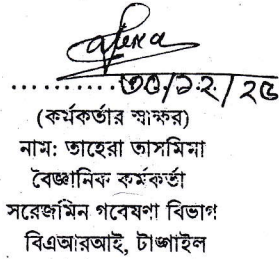 ..........৩০/১২/২৫
(কর্মকর্তার স্বাক্ষর)
নাম: তাহেরা তাসমিমা
বৈজ্ঞানিক কর্মকর্তা
সরেজমিন গবেষণা বিভাগ
বিএআরআই, টাঙ্গাইল